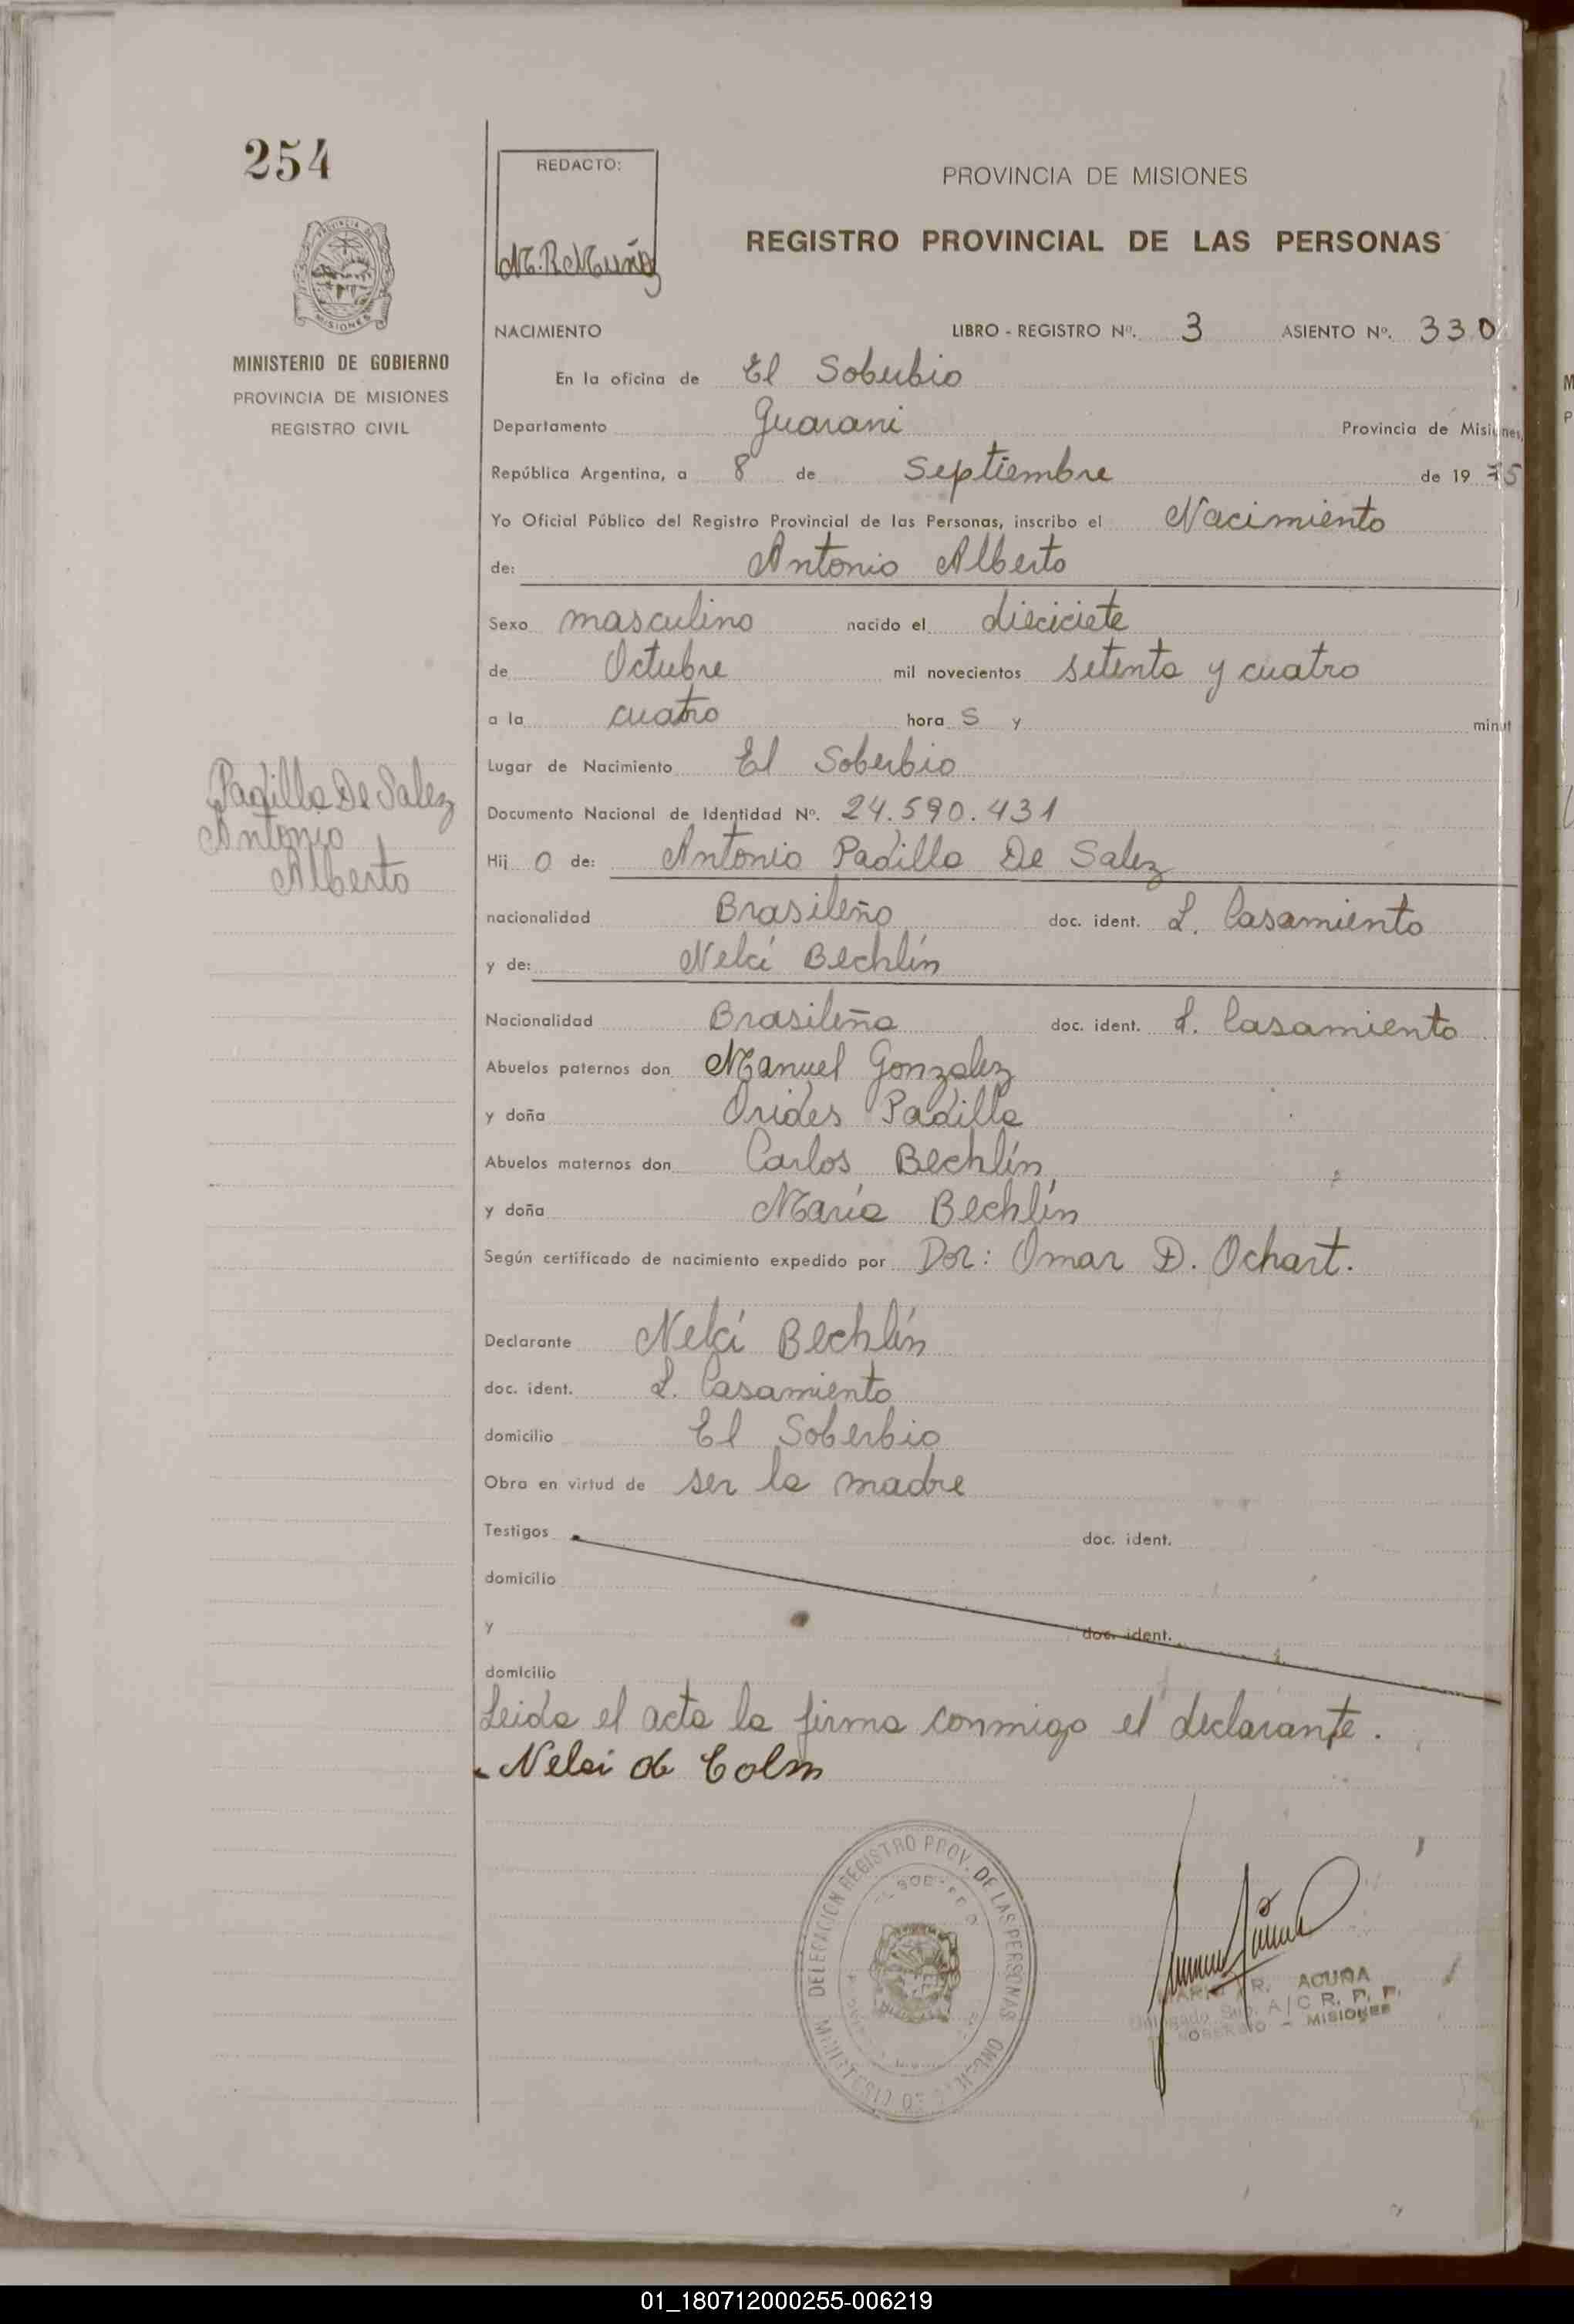 254
REDACTO:
M.R.Muñoz
PROVINCIA DE MISIONES
REGISTRO PROVINCIAL DE LAS PERSONAS
PROVINCIA DE
MISIONES
MINISTERIO DE GOBIERNO
PROVINCIA DE MISIONES
REGISTRO CIVIL
NACIMIENTO LIBRO - REGISTRO Nº. 3 ASIENTO Nº. 330
En la oficina de El Soberbio
Departamento Guarani Provincia de Misiones,
República Argentina, a 8 de Septiembre de 1975
Yo Oficial Público del Registro Provincial de las Personas, inscribo el Nacimiento
de: Antonio Alberto
Sexo masculino nacido el dieciciete
de Octubre mil novecientos setenta y cuatro
a la cuatro hora s y minut
Lugar de Nacimiento El Soberbio
Documento Nacional de Identidad Nº. 24.590.431
Hij o de: Antonio Padilla De Salez
nacionalidad Brasileño doc. ident. L. Casamiento
y de: Nelci Bechlín
Nacionalidad Brasileña doc. ident. L. Casamiento
Abuelos paternos don Manuel Gonzalez
y doña Orides Padilla
Abuelos maternos don Carlos Bechlín
y doña María Bechlín
Según certificado de nacimiento expedido por Dor: Omar D. Ochart.
Declarante Nelci Bechlín
doc. ident. L. Casamiento
domicilio El Soberbio
Obra en virtud de ser la madre
Testigos doc. ident.
domicilio
y doc. ident.
domicilio
Leida el acta la firma conmigo el declarante.
Nelci
Padilla De Salez
Antonio
Alberto
DELEGACION REGISTRO PROV. DE LAS PERSONAS
R. ACUÑA
Delegado Sup. A/C R. P. P.
SOBERBIO - MISIONES
01_180712000255-006219